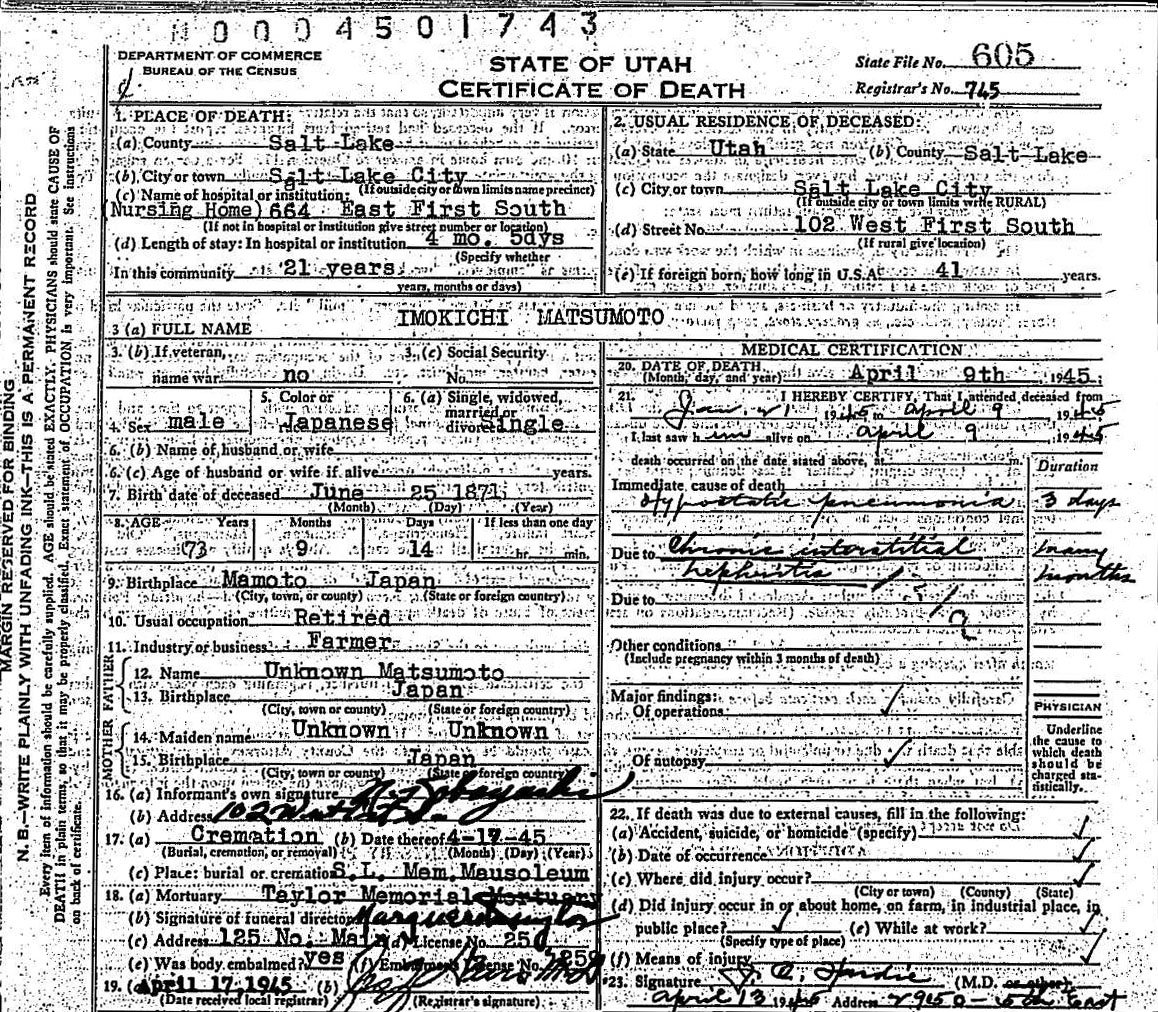 0004501743
DEPARTMENT OF COMMERCE
BUREAU OF THE CENSUS
STATE OF UTAH
CERTIFICATE OF DEATH
State File No. 605
Registrar's No. 745
MARGIN RESERVED FOR BINDING
N. B.—WRITE PLAINLY WITH UNFADING INK—THIS IS A PERMANENT RECORD
Every item of information should be carefully supplied. AGE should be stated EXACTLY. PHYSICIANS should state CAUSE OF
DEATH in plain terms, so that it may be properly classified. Exact statement of OCCUPATION is very important. See instructions
on back of certificate.
1. PLACE OF DEATH:
(a) County Salt Lake
(b) City or town Salt Lake City
(If outside city or town limits name precinct)
(c) Name of hospital or institution:
(Nursing Home) 664 East First South
(If not in hospital or institution give street number or location)
(d) Length of stay: In hospital or institution 4 mo. 5dys
(Specify whether
In this community 21 years
years, months or days)
2. USUAL RESIDENCE OF DECEASED:
(a) State Utah (b) County Salt Lake
(c) City or town Salt Lake City
(If outside city or town limits write RURAL)
(d) Street No. 102 West First South
(If rural give location)
(e) If foreign born, how long in U.S.A. 41 years.
3 (a) FULL NAME IMOKICHI MATSUMOTO
3. (b) If veteran, name war no
3. (c) Social Security No.
4. Sex male
5. Color or race Japanese
6. (a) Single, widowed, married or divorced Single
6. (b) Name of husband or wife
6. (c) Age of husband or wife if alive years.
7. Birth date of deceased June 25 1871
(Month) (Day) (Year)
8. AGE Years Months Days If less than one day
73 9 14 hr. min.
9. Birthplace Mamoto Japan
(City, town, or county) (State or foreign country)
10. Usual occupation Retired
11. Industry or business Farmer
FATHER
12. Name Unknown Matsumoto
13. Birthplace Japan
(City, town or county) (State or foreign country)
MOTHER
14. Maiden name Unknown Unknown
15. Birthplace Japan
(City, town or county) (State or foreign country)
16. (a) Informant's own signature
(b) Address 102 West 1st So.
17. (a) Cremation (b) Date thereof 4-17-45
(Burial, cremation, or removal) (Month) (Day) (Year)
(c) Place: burial or cremation S.L. Mem. Mausoleum
18. (a) Mortuary Taylor Memorial Mortuary
(b) Signature of funeral director
(c) Address 125 No. Main (d) License No. 25
(e) Was body embalmed? yes (f) Embalmer's License No. 259
19. (a) April 17, 1945 (b)
(Date received local registrar) (Registrar's signature)
MEDICAL CERTIFICATION
20. DATE OF DEATH
(Month, day, and year) April 9th 1945
21. I HEREBY CERTIFY, That I attended deceased from
Jan. 21 1945 to April 9 1945
I last saw him alive on April 9 1945
death occurred on the date stated above, at m.
Duration
Immediate cause of death
Hypostatic pneumonia 3 days
Due to Chronic interstitial many
nephritis months
Due to
Other conditions
(Include pregnancy within 3 months of death)
Major findings:
Of operations
Of autopsy
PHYSICIAN
Underline
the cause to
which death
should be
charged sta-
tistically.
22. If death was due to external causes, fill in the following:
(a) Accident, suicide, or homicide (specify)
(b) Date of occurrence
(c) Where did injury occur?
(City or town) (County) (State)
(d) Did injury occur in or about home, on farm, in industrial place, in
public place? (e) While at work?
(Specify type of place)
(f) Means of injury
23. Signature (M.D. or other)
April 13 1945 Address 2950 - 5th East